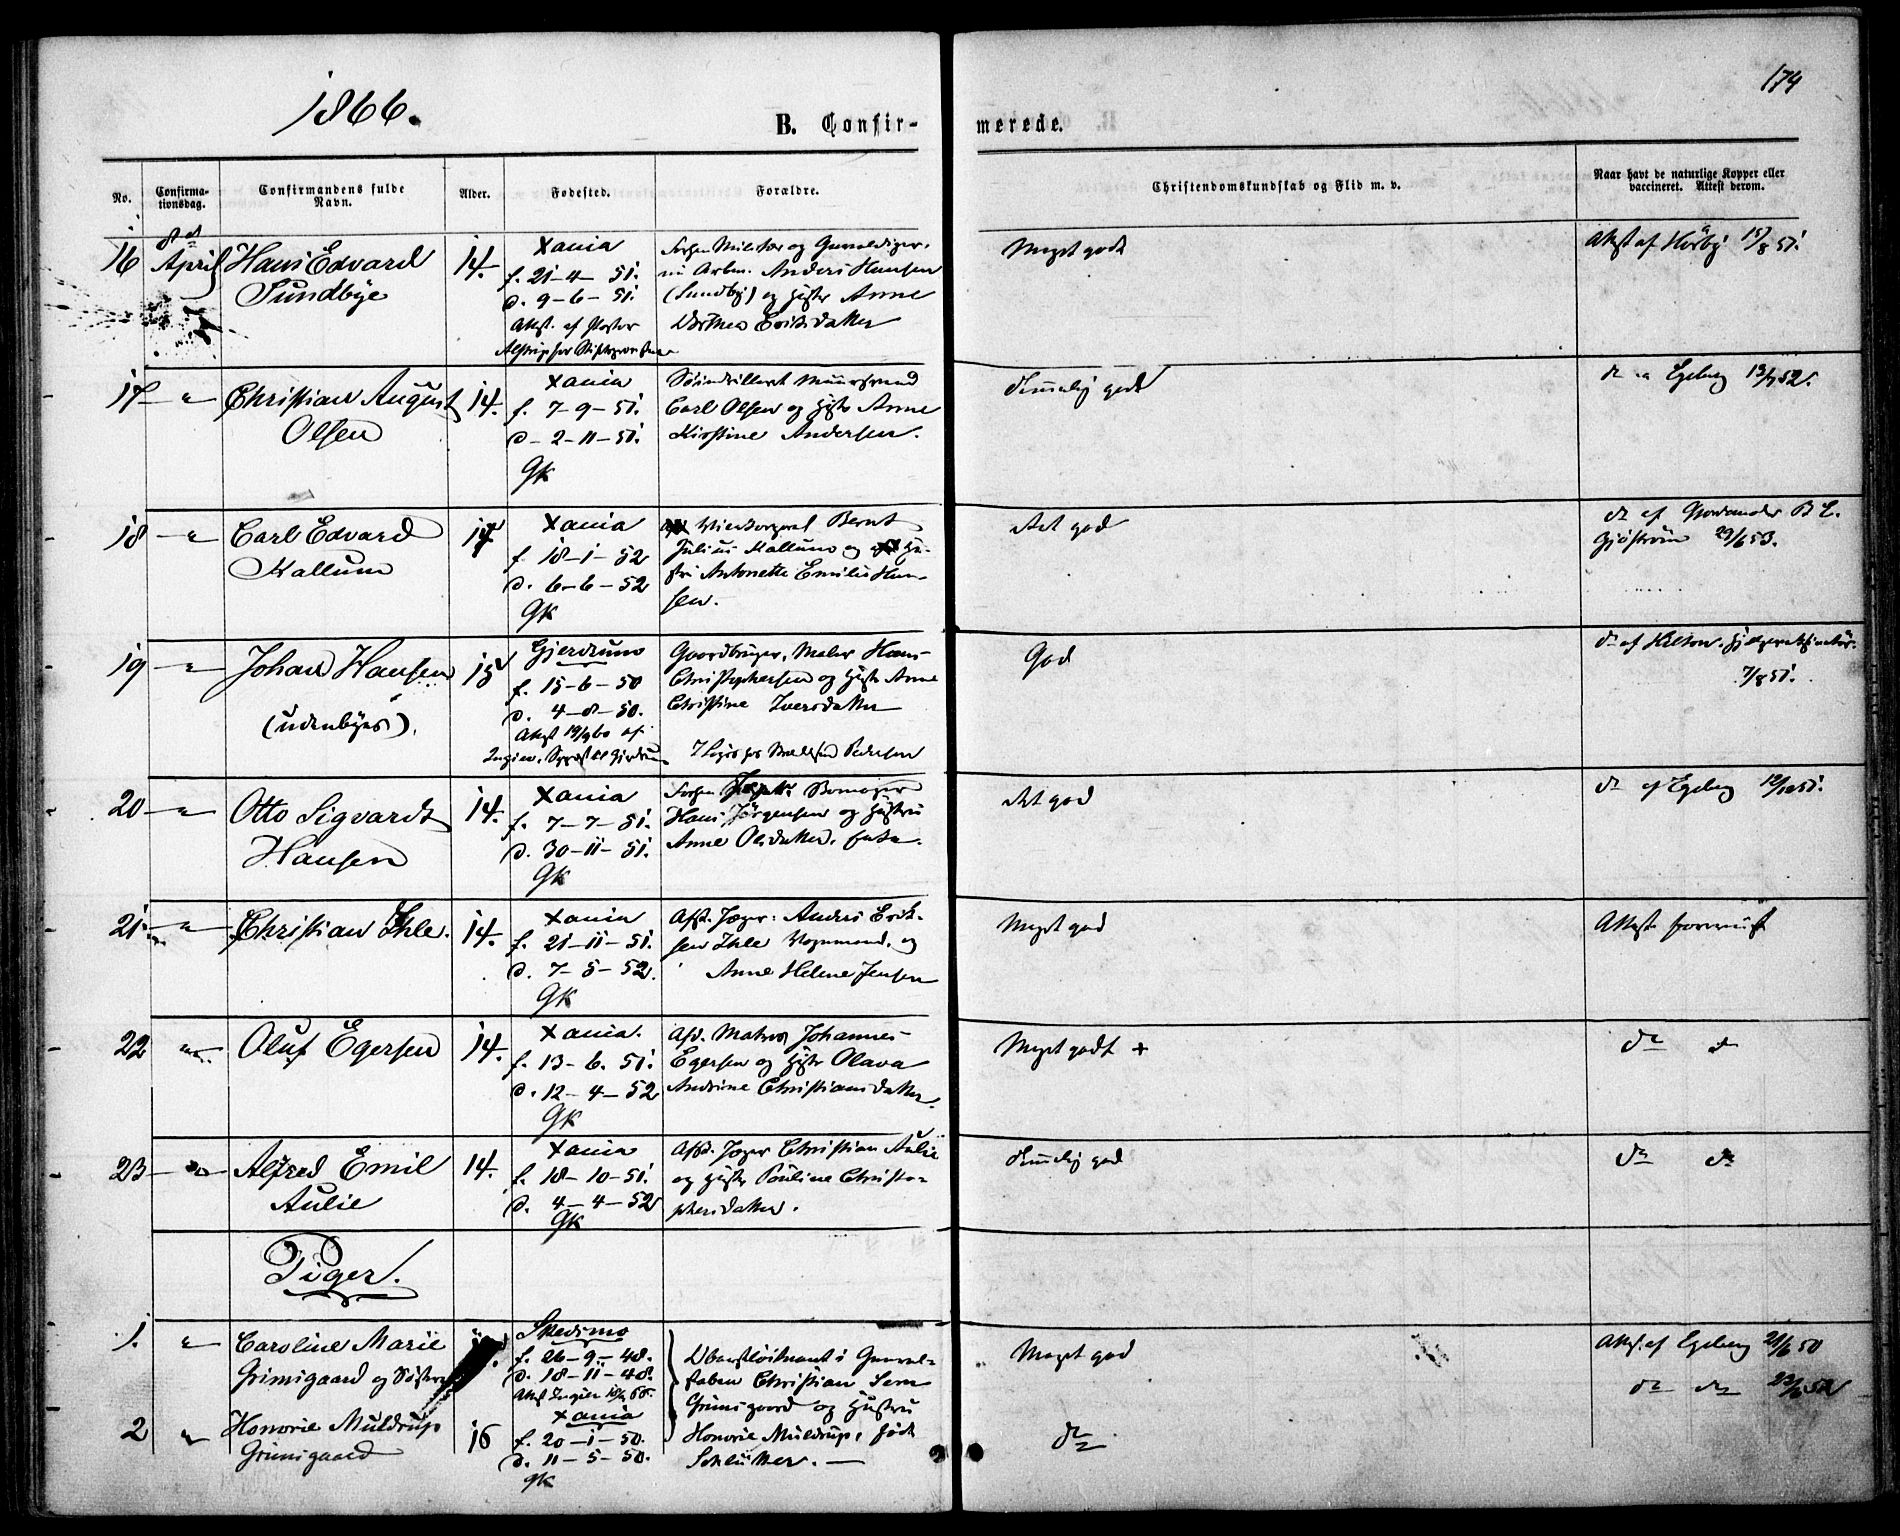 1866.
174
B. Confir-
merede.
No.
Confirma-
tionsdag.
Confirmandens fulde
Navn.
Alder.
Fødested.
Forældre.
Christendomskundskab og Flid m. v.
Naar havt de naturlige Kopper eller
vaccineret. Attest derom.
16 April Hans Edvard
Sundbye
14.
Xania
f. 21-4-51.
d. 9-6-51.
Attest. af Pastor
og
Arbm. Anders Hansen
(Sundby) og Hustr Anne
Dorthea Eriksdatter
Meget godt
Attest af Hørbÿ 15/8 51.
17 " Christian August
Olsen
14.
Xania
f. 7-9-51.
d. 2-11-51.
GK
Carl Olsen og Hustr Anne
Kirstine Andersen.
temmelig godt
do " Egeberg 13/7 52.
18 " Carl Edvard
Kallum
14
Xania
f. 18-1-52
d. 6-6-52
GK
Bernt
Julius Kallum og Hu-
stru Antonette Emilie Han-
sen.
Ret god
do af B C.
29/6 53.
19 " Johan Hansen
(udenbyes).
15
Gjerdrum
f. 15-6-50
d. 4-8-50.
Attest 19/9 60 af
Gaardbruger, Maler Hans
Christophersen og Hustr Anne
Christine Iversdatter
Pedersen
God
do af
7/8 51.
20 " Otto Sigvardt
Hansen
14.
Xania
f. 7-7-51.
d. 30-11-51.
GK
Hans Jörgensen og Hustru
Anne Olsdatter.
Ret god
do af Egeberg 12/12 51.
21 " Christian Ihle.
14.
Xania
f. 21-11-51.
d. 7-5-52.
GK
Afsk. Jæger: Anders Erik-
sen Ihle Vognmand, og
Anne Helene Jensen
Meget god
Attest forevist
22 " Oluf Egersen
14.
Xania.
f. 13-6-51.
d. 12-4-52
GK
Afd. Matros Johannes
Egersen og Hustr Olava
Andrine Christiansdatter.
Meget godt +
do do
23 " Alfred Emil
Aulie
14.
Xania
f. 18-10-51.
d. 4-4-52
GK
Afsk. Jæger Christian Aulie
og Hustr Pouline Christo-
phersdatter.
temmelig god
do do
Piger.
1. " Caroline Marie
Grimsgaard og Søster
Skedsmo
f. 26-9-48.
d. 18-11-48.
Oberstløitnant i General-
staben Christian Sem
Grimsgaard og Hustru
Honorie Muldrup, født
Schlütter.
Meget god
Attest. af Egeberg 21/6 50
do do
2 " Honorie Muldrup
Grimsgaard
16
Xania
f. 20-1-50.
d. 11-5-50.
GK
do